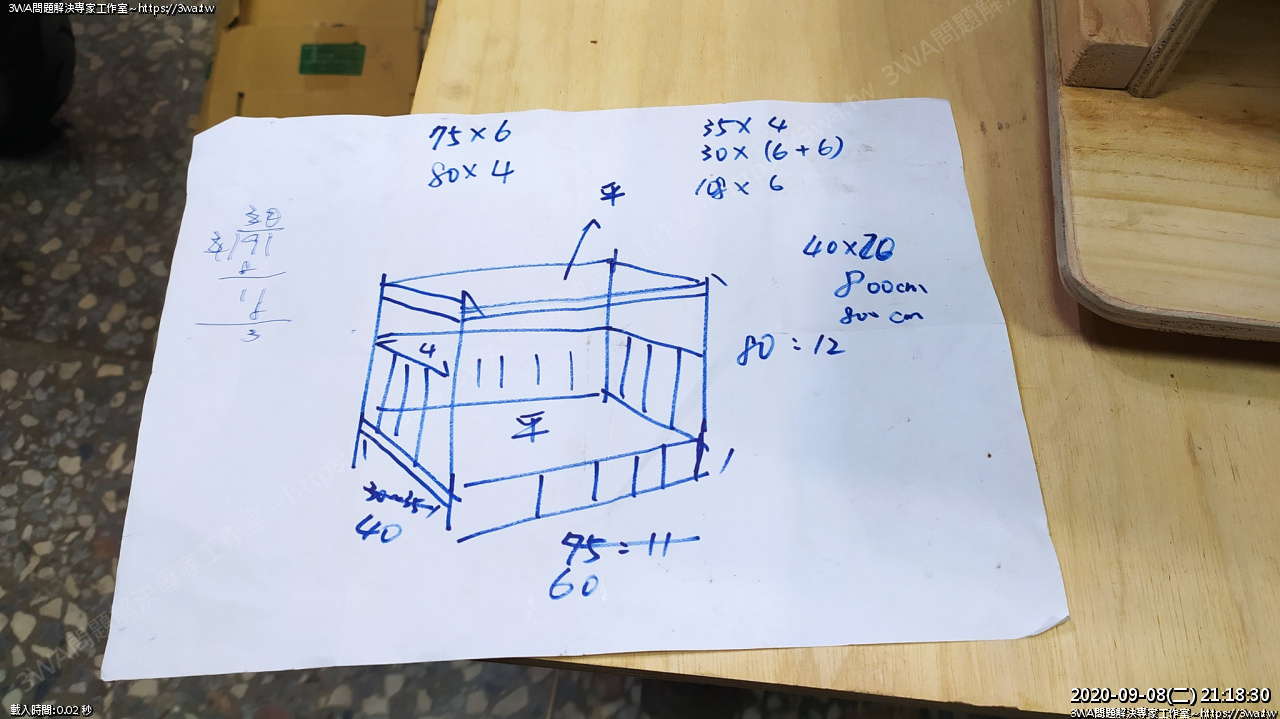 3WA問題解決專家工作室~https://3wa.tw
75 × 6
80 × 4
35 × 4
30 × (6 + 6)
108 × 6
平
40×20
800cm
800 cm
80 : 12
4
平
30~35
40
75 : 11
60
2020-09-08(二) 21:18:30
載入時間:0.02 秒
3WA問題解決專家工作室~https://3wa.tw